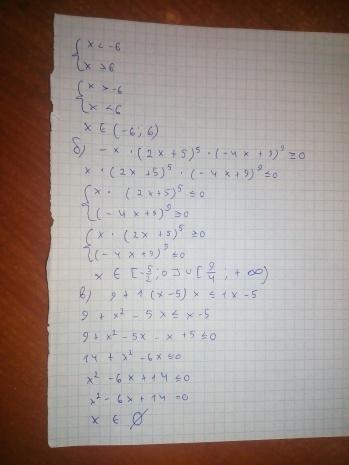 { x < -6
{ x > 6
{ x > -6
{ x < 6
x ∈ (-6; 6)
б) -x · (2x+5)⁵ · (-4x+9)⁹ ≥ 0
x · (2x+5)⁵ · (-4x+9)⁹ ≤ 0
{ x · (2x+5)⁵ ≤ 0
{ (-4x+9)⁹ ≥ 0
{ x · (2x+5)⁵ ≥ 0
{ (-4x+9)⁹ ≤ 0
x ∈ [-5/2; 0] ∪ [9/4; +∞)
в) 9 + 1 (x-5) x ≤ 1x - 5
9 + x² - 5x ≤ x - 5
9 + x² - 5x - x + 5 ≤ 0
14 + x² - 6x ≤ 0
x² - 6x + 14 ≤ 0
x² - 6x + 14 = 0
x ∈ ∅